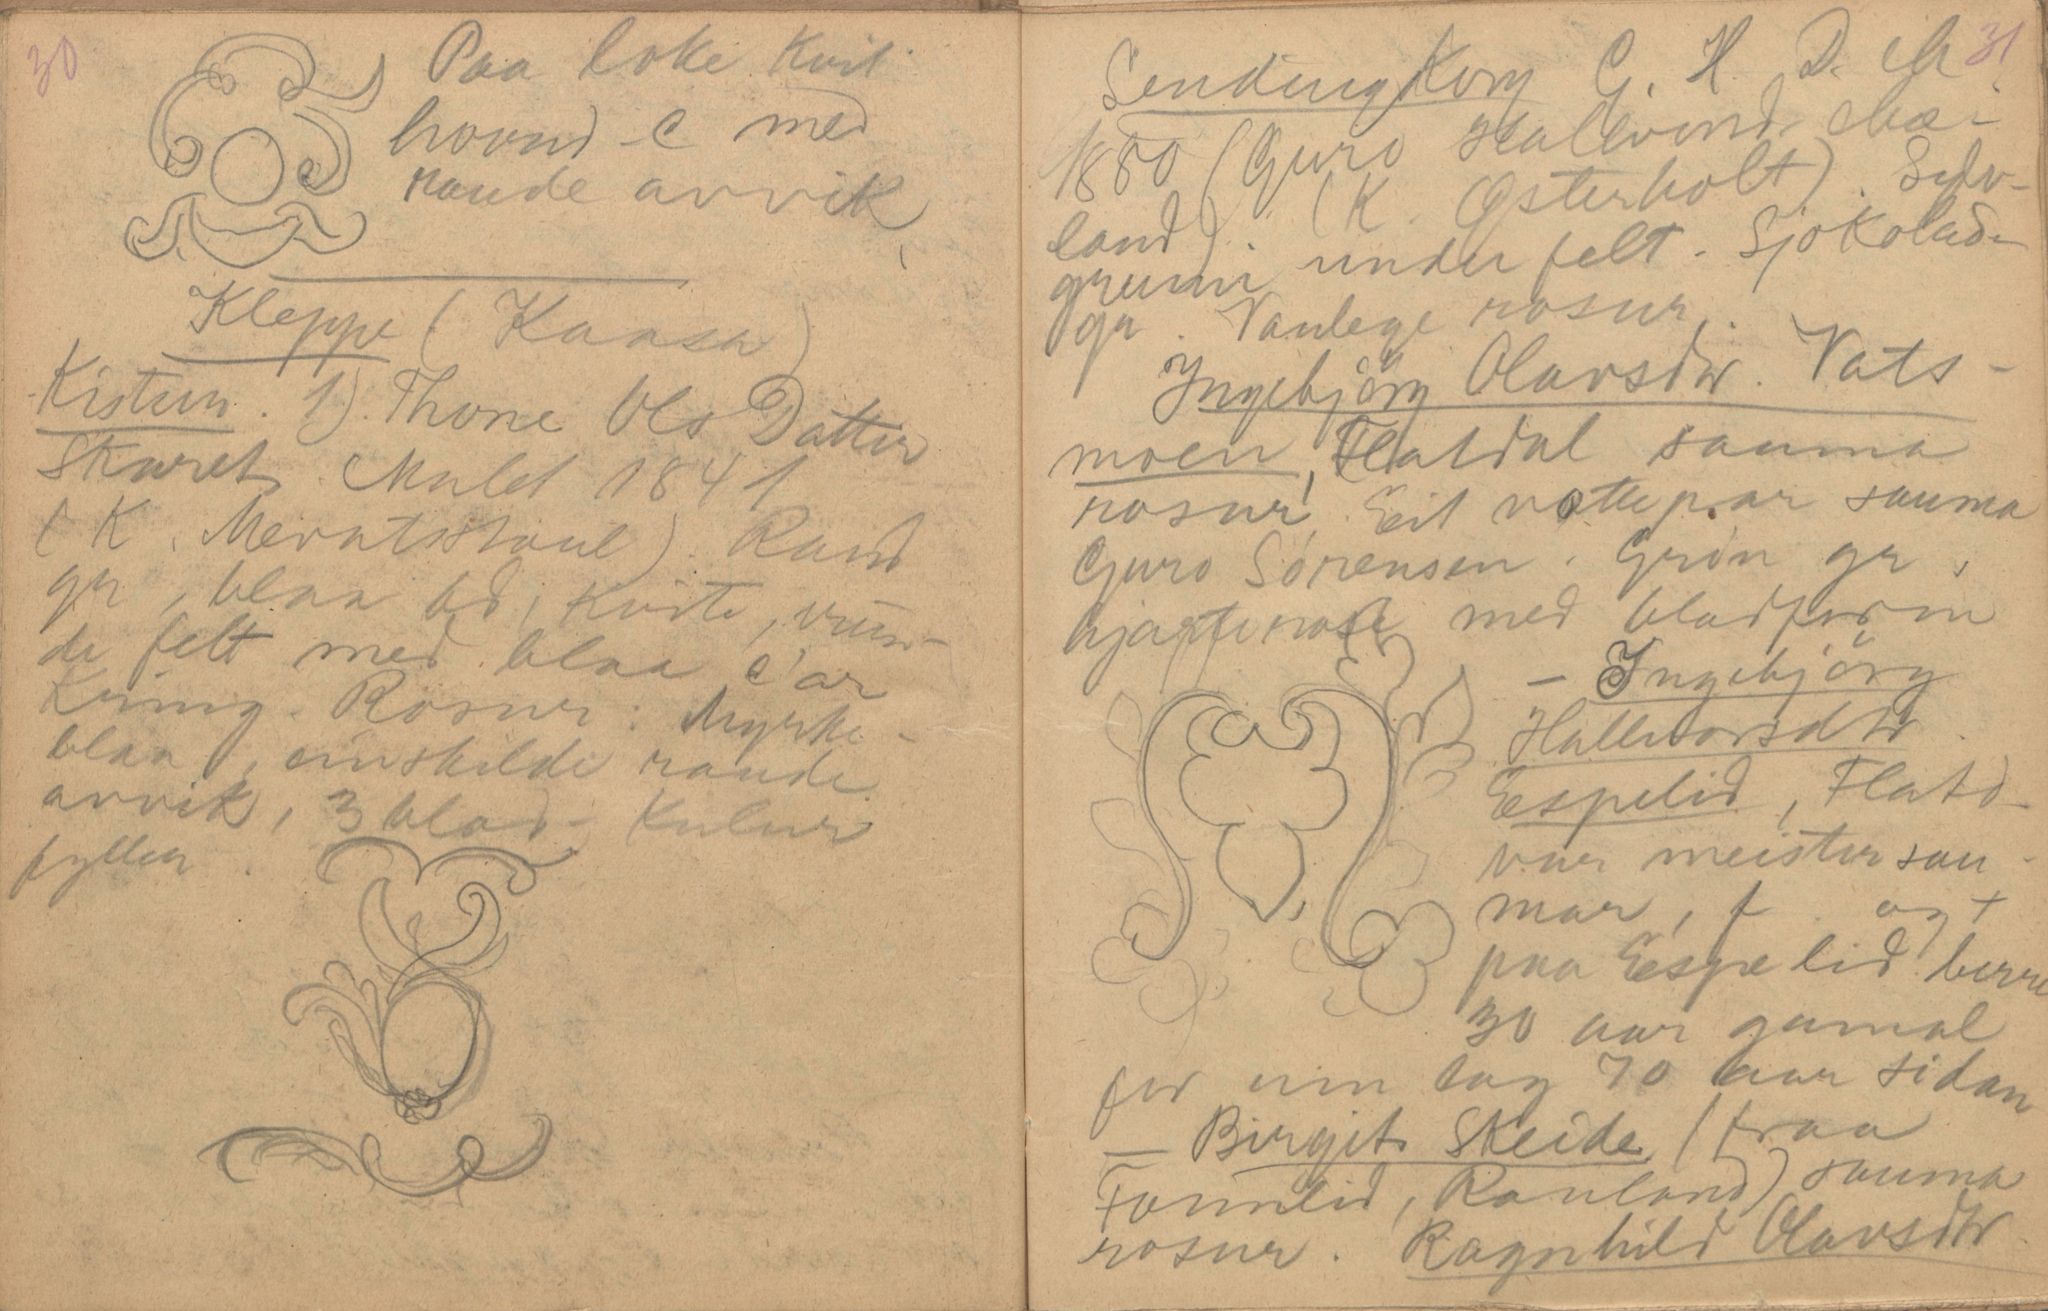 30
Paa loke kvit
hovud -C med
raude avvik
Kleppe (Kaasa)
Kistur. 1) Thone Ols Datter
Skaret. Malet 1841
(K. Meratsstaul). Raud
gr, blaa bd, kvite, run-
de felt med blaa C'ar
kring. Rosur: Myrke-
blaa, einskilde raude
avvik, 3 blad- Kulur
fyller.
31
Sendingkorg G. H. D.
1880 (Guro Hallvord.
land). (K. Østerholt).
grunn under felt. Sjokolade
gr. Vanlege rosur.
Ingebjörg Olavsdtr. Vats-
moen, Flatdal sauma
rosur. Eit vottepar sauma
Guro Sørensen. Grön gr,
hjarterose med bladform
- Ingebjörg
Hallvorsdtr
Espelid, Flatd-
var meistersau-
mar, f. og +
paa Espelid berre
30 aar gamal
for um lag 70 aar sidan
- Birgit Skeide (fraa
Formlid, Rauland) sauma
rosur. Ragnhild Olavsdtr